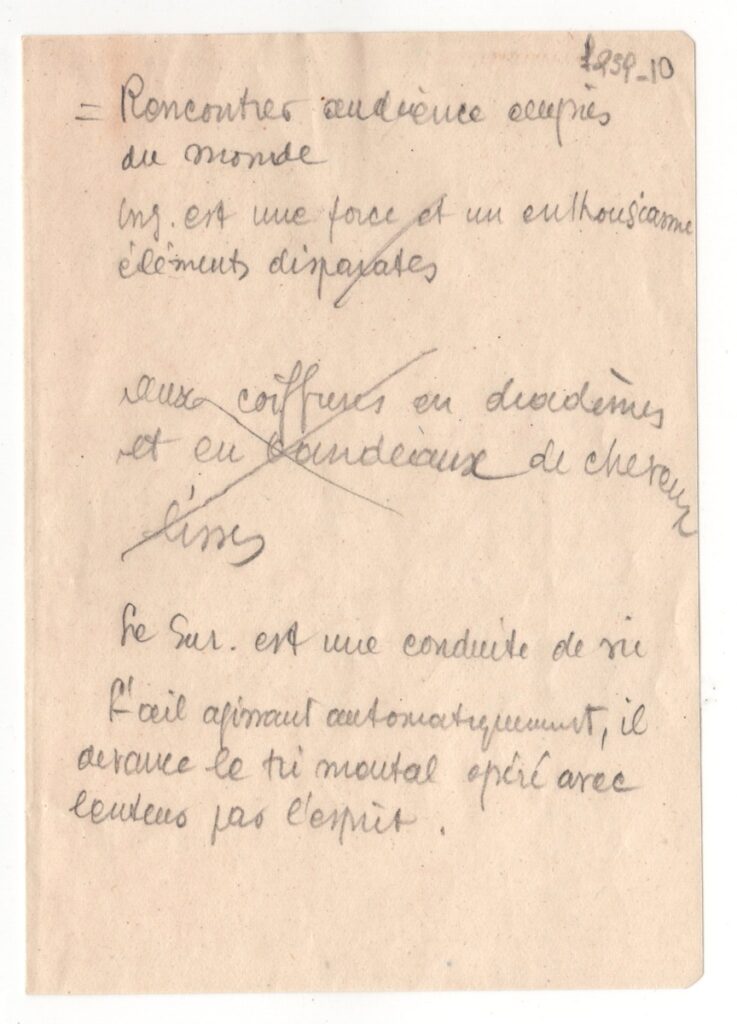 1939-10
= Rencontrer audience auprès
du monde
Ing. est une force et un enthousiasme
éléments disparates
aux coiffures en diadèmes
et en bandeaux de cheveux
lisses
Le Sur. est une conduite de vie
L'œil agissant automatiquement, il
devance le tri mental opéré avec
lenteur par l'esprit.